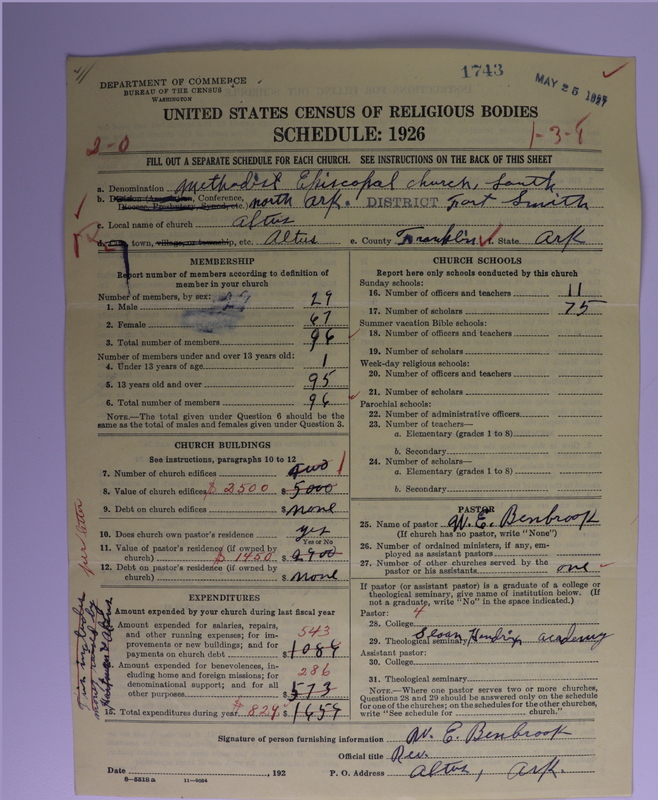 1743
MAY 25 1927
DEPARTMENT OF COMMERCE
BUREAU OF THE CENSUS
WASHINGTON
UNITED STATES CENSUS OF RELIGIOUS BODIES
SCHEDULE: 1926
2-0
1-3-8
FILL OUT A SEPARATE SCHEDULE FOR EACH CHURCH. SEE INSTRUCTIONS ON THE BACK OF THIS SHEET
a. Denomination Methodist Episcopal church, South
b. Division (Association, Conference, Diocese, Presbytery, Synod, etc.) North Ark. DISTRICT Fort Smith
c. Local name of church Altus
d. City, town, village, or township, etc. Altus e. County Franklin State Ark
MEMBERSHIP
Report number of members according to definition of
member in your church
Number of members, by sex:
1. Male 29
2. Female 67
3. Total number of members 96
Number of members under and over 13 years old:
4. Under 13 years of age 1
5. 13 years old and over 95
6. Total number of members 96
NOTE.—The total given under Question 6 should be the
same as the total of males and females given under Question 3.
CHURCH BUILDINGS
See instructions, paragraphs 10 to 12
7. Number of church edifices two 1
8. Value of church edifices $ 2500 $ 5000
9. Debt on church edifices $ none
10. Does church own pastor's residence yes
Yes or No
11. Value of pastor's residence (if owned by
church) $ 1450 $ 2900
12. Debt on pastor's residence (if owned by
church) $ none
EXPENDITURES
Amount expended by your church during last fiscal year
13. Amount expended for salaries, repairs,
and other running expenses; for im-
provements or new buildings; and for
payments on church debt 543 $ 1086
14. Amount expended for benevolences, in-
cluding home and foreign missions; for
denominational support; and for all
other purposes 286 $ 573
15. Total expenditures during year $ 829 $ 1659
per letter
CHURCH SCHOOLS
Report here only schools conducted by this church
Sunday schools:
16. Number of officers and teachers 11
17. Number of scholars 75
Summer vacation Bible schools:
18. Number of officers and teachers
19. Number of scholars
Week-day religious schools:
20. Number of officers and teachers
21. Number of scholars
Parochial schools:
22. Number of administrative officers
23. Number of teachers—
a. Elementary (grades 1 to 8)
b. Secondary
24. Number of scholars—
a. Elementary (grades 1 to 8)
b. Secondary
PASTOR
25. Name of pastor W. E. Benbrook
(If church has no pastor, write "None")
26. Number of ordained ministers, if any, em-
ployed as assistant pastors
27. Number of other churches served by the
pastor or his assistants one
If pastor (or assistant pastor) is a graduate of a college or
theological seminary, give name of institution below. (If
not a graduate, write "No" in the space indicated.)
Pastor: 4
28. College
29. Theological seminary Sloan Hendrix academy
Assistant pastor:
30. College
31. Theological seminary
NOTE.—Where one pastor serves two or more churches,
Questions 28 and 29 should be answered only on the schedule
for one of the churches; on the schedules for the other churches,
write "See schedule for church."
Signature of person furnishing information W. E. Benbrook
Official title Rev.
Date , 192 P. O. Address Altus, Ark.
8-5518 a 11-9064